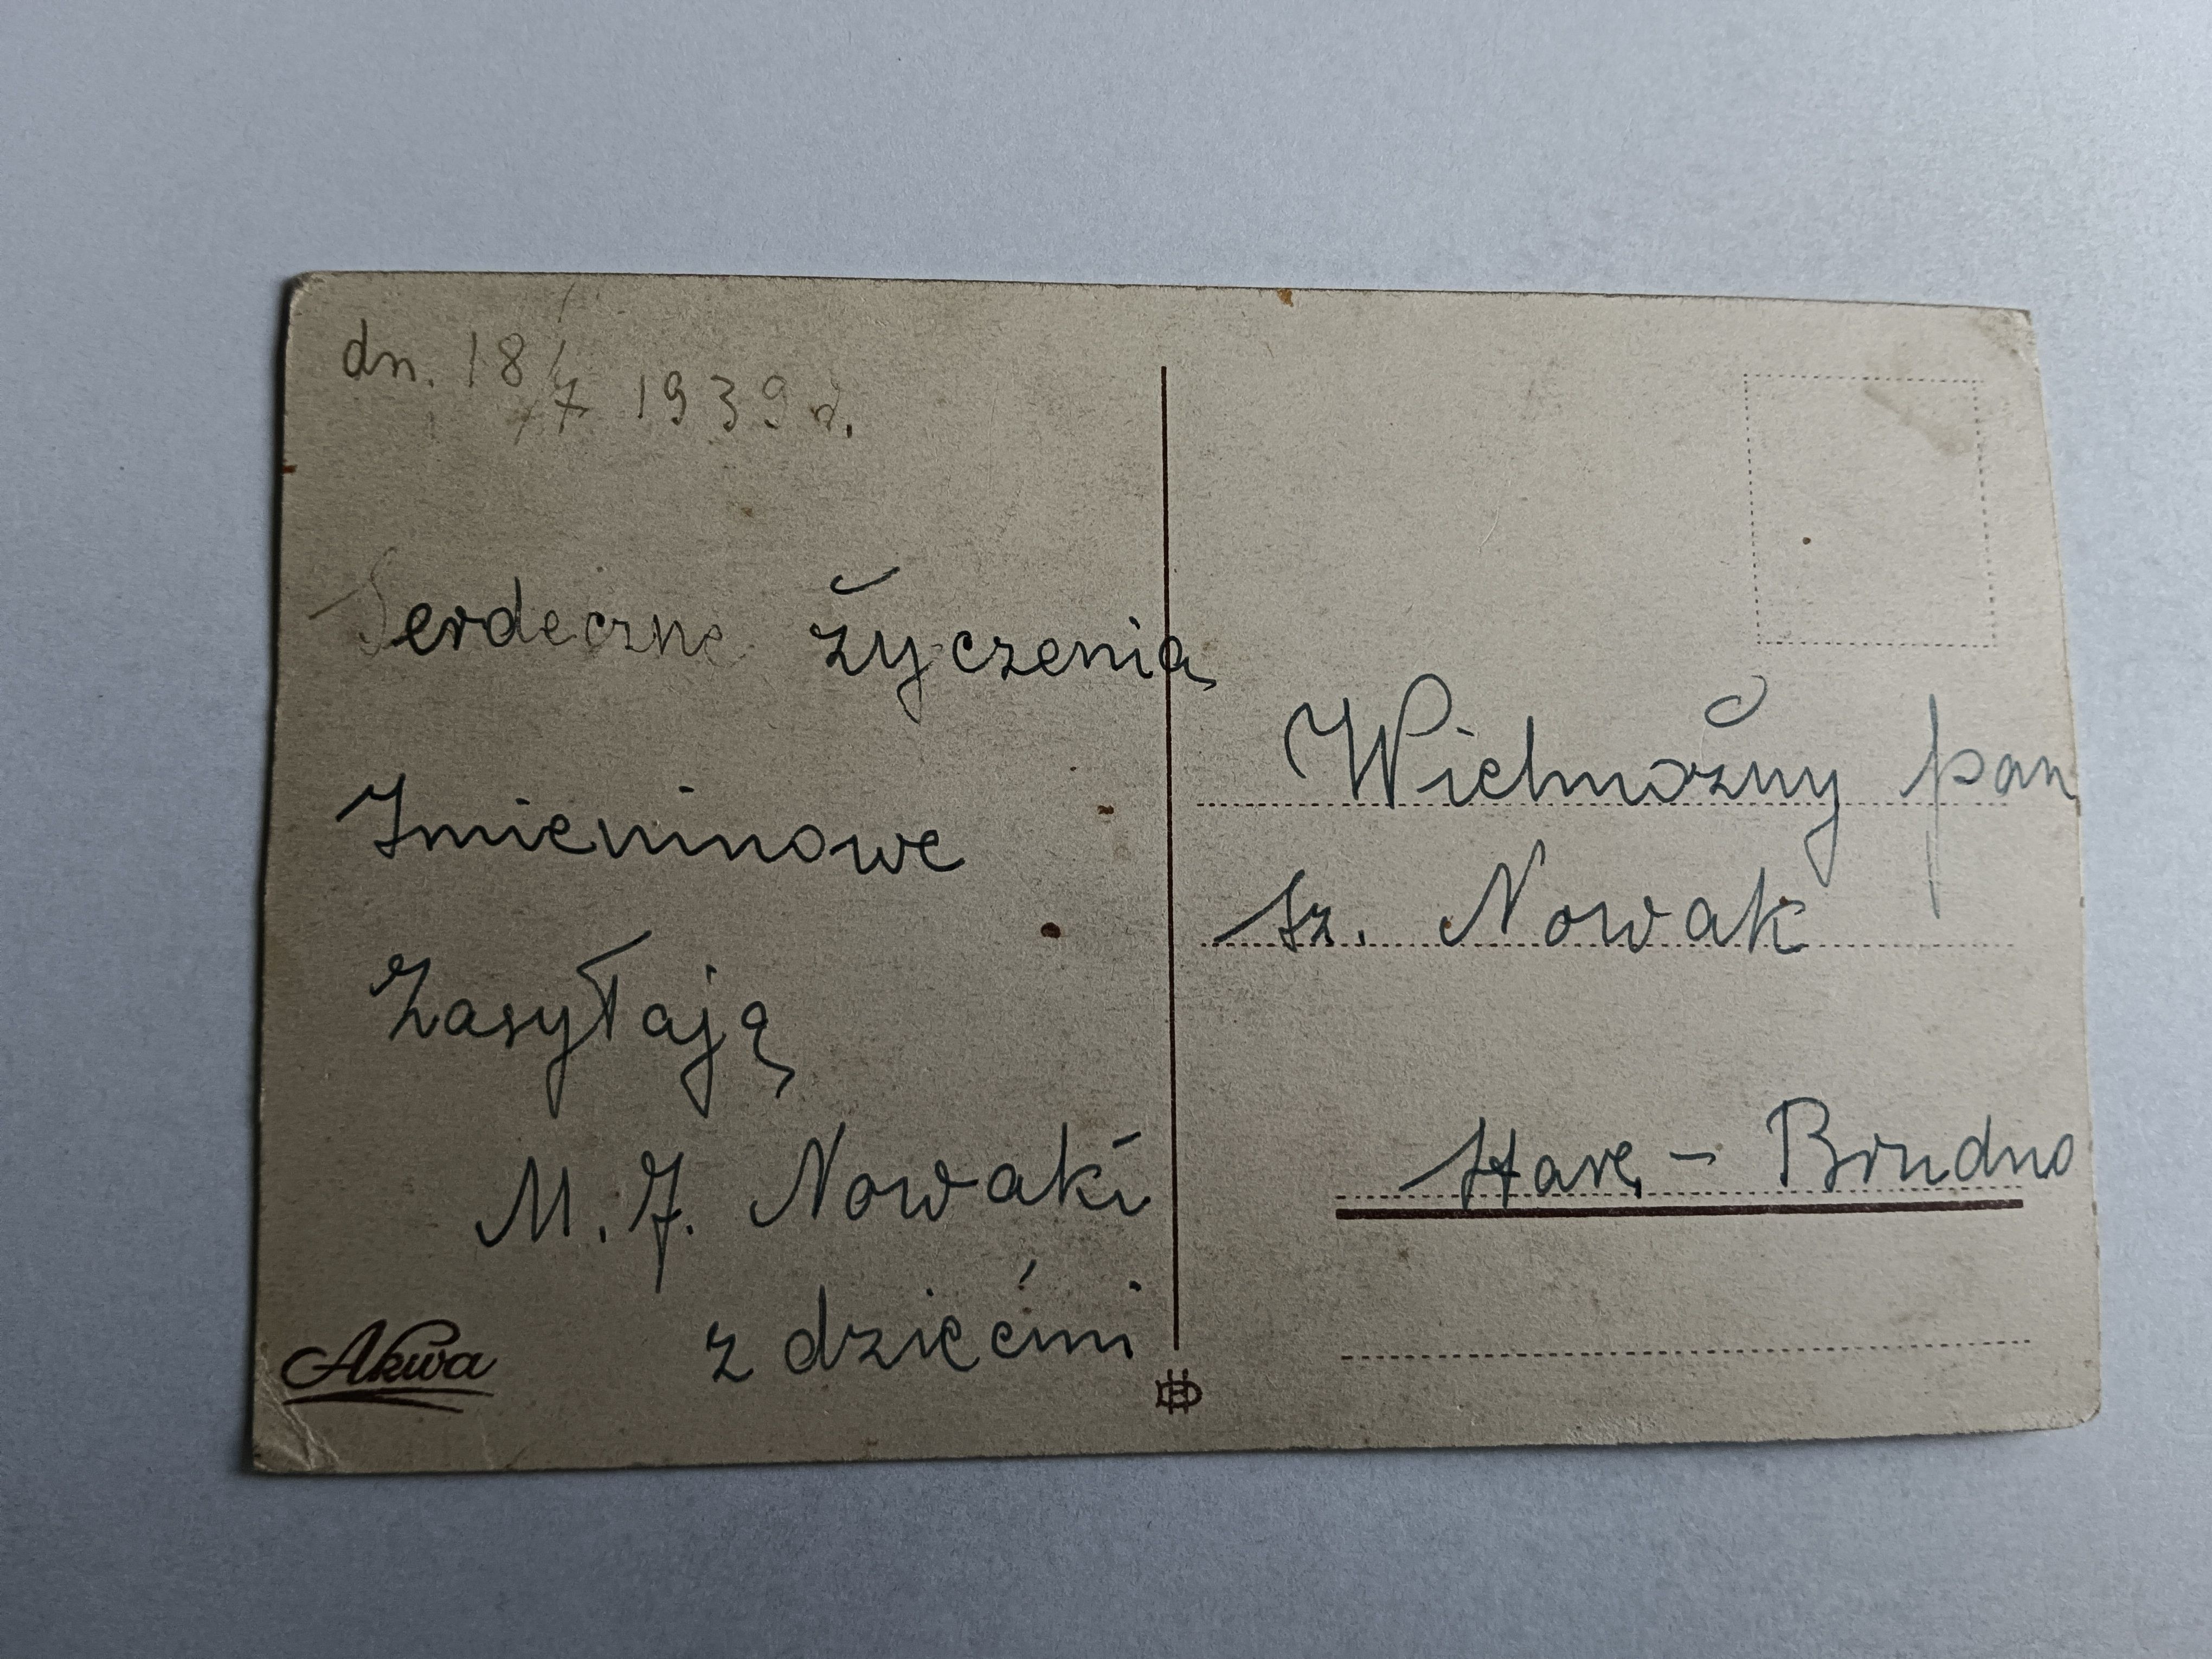 dn. 18/7 1939 r.
Serdeczne życzenia
Imieninowe
Zasyłają
M. J. Nowaki
z dziećmi
Akwa
Wielmożny pan
Sz. Nowak
Stare - Brudno